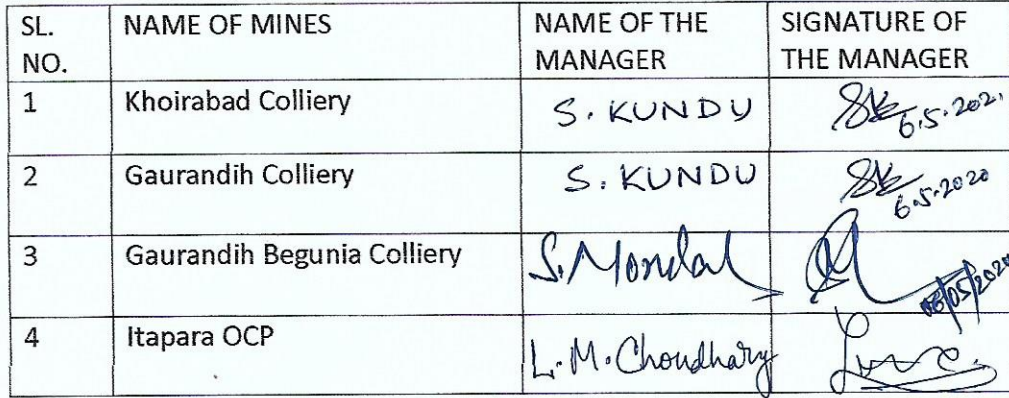 SL. NO. NAME OF MINES NAME OF THE MANAGER SIGNATURE OF THE MANAGER
1 Khoirabad Colliery S. KUNDU 6.5.202
2 Gaurandih Colliery S. KUNDU 6.5.2020
3 Gaurandih Begunia Colliery S. Mondal 06/05/2020
4 Itapara OCP L.M. Choudhary